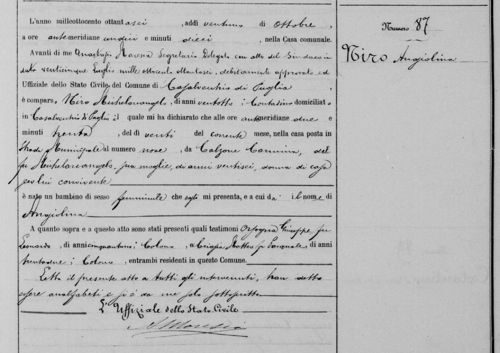 L'anno milleottocento ottantasei, addì ventuno di Ottobre,
a ore antemeridiane undici e minuti dieci, nella Casa comunale.
Avanti di me Segretario Delegato con atto del Sindaco in
data venticinque Luglio mille ottocento ottantasei, debitamente approvato ed
Uffiziale dello Stato Civile del Comune di Casalvecchio di Puglia
è comparso Niro Michelarcangelo, di anni ventotto, Contadino domiciliato
in Casalvecchio di Puglia, il quale mi ha dichiarato che alle ore antemeridiane due e
minuti trenta, del dì venti del corrente mese, nella casa posta in
Strada Municipale al numero nove, da Calzone Carmina, del
fu Michelarcangelo, sua moglie, di anni ventisei, donna di casa
con lui convivente
è nato un bambino di sesso femminile che egli mi presenta, e a cui dà il nome di
Angiolina
A quanto sopra e a questo atto sono stati presenti quali testimoni Giuseppe fu
Leonardo, di anni cinquantuno, Colono, e Matteo fu Pasquale, di anni
ventadue, Colono, entrambi residenti in questo Comune.
Letto il presente atto a tutti gli intervenuti, han detto
essere analfabeti e si è da me solo sottoscritto
L'Uffiziale dello Stato Civile
Numero 87
Niro Angiolina